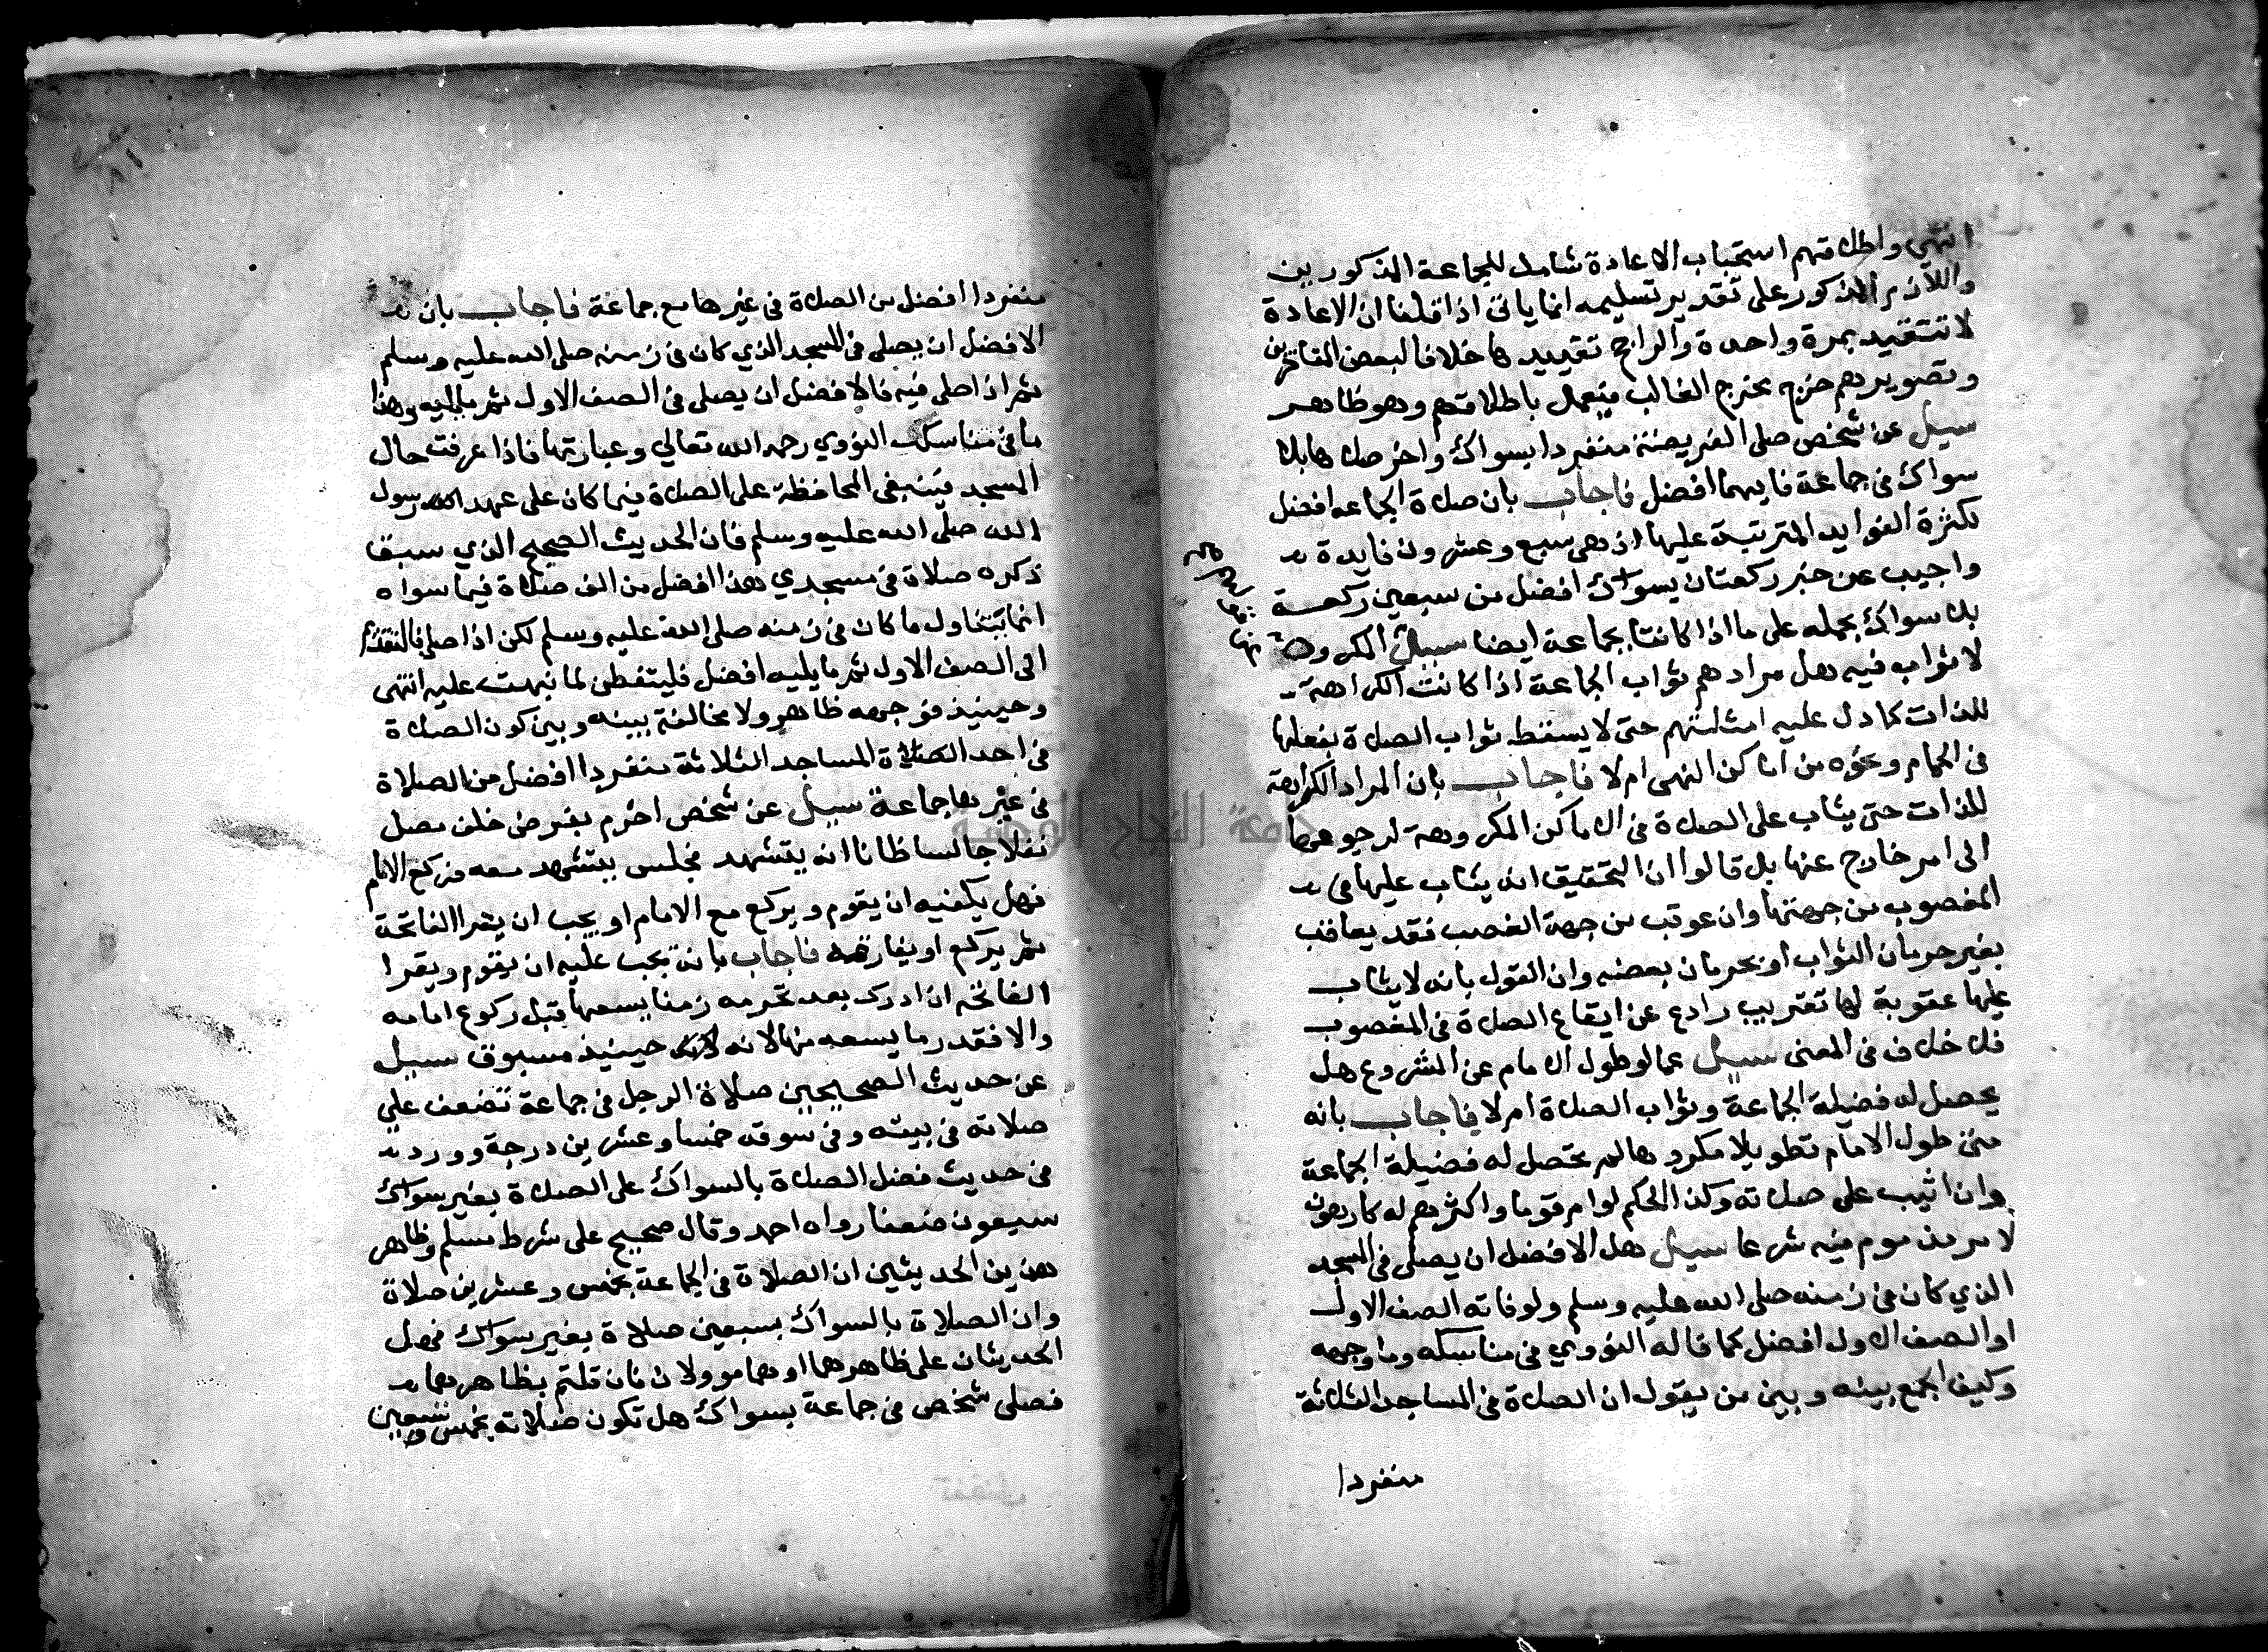 انتهي واطلاقهم استحباب الاعادة شامل للجماعة المذكورين
واللازم المذكور على تقدير تسليمه انما ياتى اذا قلنا ان الاعادة
لا تتقيد بمرة واحدة والراجح تقييدها خلافا لبعض المتاخرين
وتصويرهم خرج مخرج الغالب فيعمل باطلاقهم وهو ظاهر
سيل عن شخص صلى الفريضة منفردا بسواك واخر صلاها بلا
سواك فى جماعة فايهما افضل فاجاب بان صلاة الجماعه افضل
لكثرة الفوايد المترتبة عليها اذ هى سبع وعشرون فايدة
واجيب عن خبر ركعتان بسواك افضل من سبعين ركعة
بلا سواك بحمله على ما اذا كانتا بجماعة ايضا سيل المكروه
لا ثواب فيه هل مرادهم ثواب الجماعة اذا كانت الكراهة
للذات كما دل عليه امثلتهم حتى لا يسقط ثواب الصلاة بفعلها
فى الحمام ونحوه من اماكن النهى ام لا فاجاب بان المراد الكراهة
للذات حتى يثاب على الصلاة فى الاماكن المكروهة لرجوعها
الى امر خارج عنها بل قالوا ان التحقيق انه يثاب عليها فى
المغصوب من جهتها وان عوقب من جهة الغصب فقد يعاقب
بغير حرمان الثواب او بحرمان بعضه وان القول بانه لا يثاب
عليها عقوبة لها تقريب رادع عن ايقاع الصلاة فى المغصوب
فلا خلاف فى المعنى سيل عما لو طول الامام عن المشروع هل
يحصل له فضيلة الجماعة وثواب الصلاة ام لا فاجاب بانه
متى طول الامام تطويلا مكروها لم تحصل له فضيلة الجماعة
وان اثيب على صلاته وكذا الحكم لو ام قوما واكثرهم له كارهون
لامر مذموم فيه شرعا سيل هل الافضل ان يصلى فى المسجد
الذي كان فى زمنه صلى الله عليه وسلم ولو فاته الصف الاول
او الصف الاول افضل كما قاله النووي فى مناسكه وما وجهه
وكيف الجمع بينه وبين من يقول ان الصلاة فى المساجد الثلاثة
منفردا
منفردا افضل من الصلاة فى غيرها مع جماعة فاجاب بان
الافضل ان يصلى فى المسجد الذي كان فى زمنه صلى الله عليه وسلم
ثم اذا صلى فيه فالافضل ان يصلى فى الصف الاول ثم ما يليه وهذا
ما فى مناسك النووي رحمه الله تعالي وعبارتها فاذا عرفت حال
المسجد فينبغى المحافظة على الصلاة فيما كان على عهد رسول
الله صلى الله عليه وسلم فان الحديث الصحيح الذي سبق
ذكره صلاة فى مسجدي هذا افضل من الف صلاة فيما سواه
انما يتناول ما كان فى زمنه صلى الله عليه وسلم لكن اذا صلى فالتقدم
الى الصف الاول ثم ما يليه افضل فليتفطن لما نبهت عليه انتهى
وحينيذ فوجهه ظاهر ولا مخالفة بينه وبين كون الصلاة
فى احد المساجد الثلاثة منفردا افضل من الصلاة
فى غيرها جماعة سيل عن شخص احرم بفرض خلف مصل
نفلا جالسا ظانا انه يتشهد فجلس يتشهد معه فركع الامام
فهل يكفيه ان يقوم ويركع مع الامام او يجب ان يقرا الفاتحة
ثم يركع او يفارقه فاجاب بانه يجب عليه ان يقوم ويقرا
الفاتحة ان ادرك بعد تحرمه زمنا يسعها قبل ركوع امامه
والا فقدر ما يسعه منها لانه حينيذ مسبوق سيل
عن حديث الصحيحين صلاة الرجل فى جماعة تضعف على
صلاته فى بيته وفى سوقه خمسا وعشرين درجة وورد
فى حديث فضل الصلاة بالسواك على الصلاة بغير سواك
سبعون ضعفا رواه احمد وقال صحيح على شرط مسلم وظاهر
هذين الحديثين ان الصلاة فى الجماعة بخمس وعشرين صلاة
وان الصلاة بالسواك بسبعين صلاة بغير سواك فهل
الحديثان على ظاهرهما او هما موولان فان قلتم بظاهرهما
فصلى شخص فى جماعة بسواك هل تكون صلاته بخمس وتسعين
جامعة النجاح الوطنية